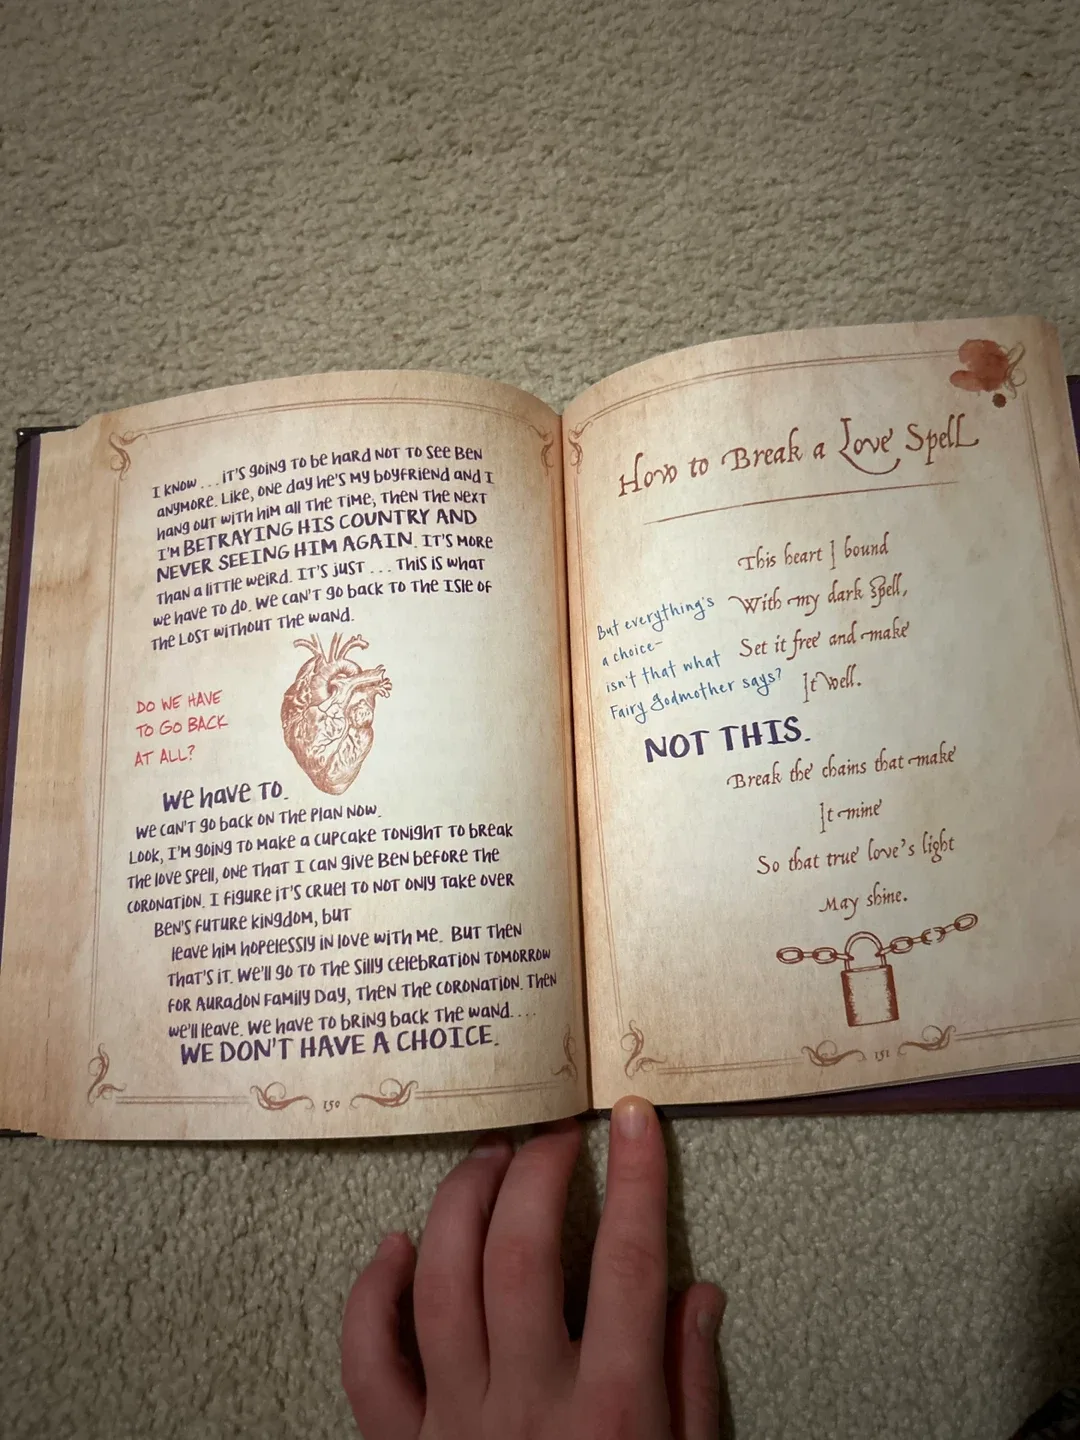 I KNOW . . . IT'S GOING TO BE HARD NOT TO SEE BEN
ANYMORE. LIKE, ONE DAY HE'S MY BOYFRIEND AND I
HANG OUT WITH HIM ALL THE TIME, THEN THE NEXT
I'M BETRAYING HIS COUNTRY AND
NEVER SEEING HIM AGAIN. IT'S MORE
THAN A LITTLE WEIRD. IT'S JUST . . . THIS IS WHAT
WE HAVE TO DO. WE CAN'T GO BACK TO THE ISLE OF
THE LOST WITHOUT THE WAND.
DO WE HAVE
TO GO BACK
AT ALL?
WE HAVE TO.
WE CAN'T GO BACK ON THE PLAN NOW.
LOOK, I'M GOING TO MAKE A CUPCAKE TONIGHT TO BREAK
THE LOVE SPELL, ONE THAT I CAN GIVE BEN BEFORE THE
CORONATION. I FIGURE IT'S CRUEL TO NOT ONLY TAKE OVER
BEN'S FUTURE KINGDOM, BUT
LEAVE HIM HOPELESSLY IN LOVE WITH ME. BUT THEN
THAT'S IT. WE'LL GO TO THE SILLY CELEBRATION TOMORROW
FOR AURADON FAMILY DAY, THEN THE CORONATION. THEN
WE'LL LEAVE. WE HAVE TO BRING BACK THE WAND. . . .
WE DON'T HAVE A CHOICE.
150
How to Break a Love Spell
This heart I bound
With my dark spell,
Set it free and make
It well.
But everything's
a choice–
isn't that what
Fairy Godmother says?
NOT THIS.
Break the chains that make
It mine
So that true love's light
May shine.
151